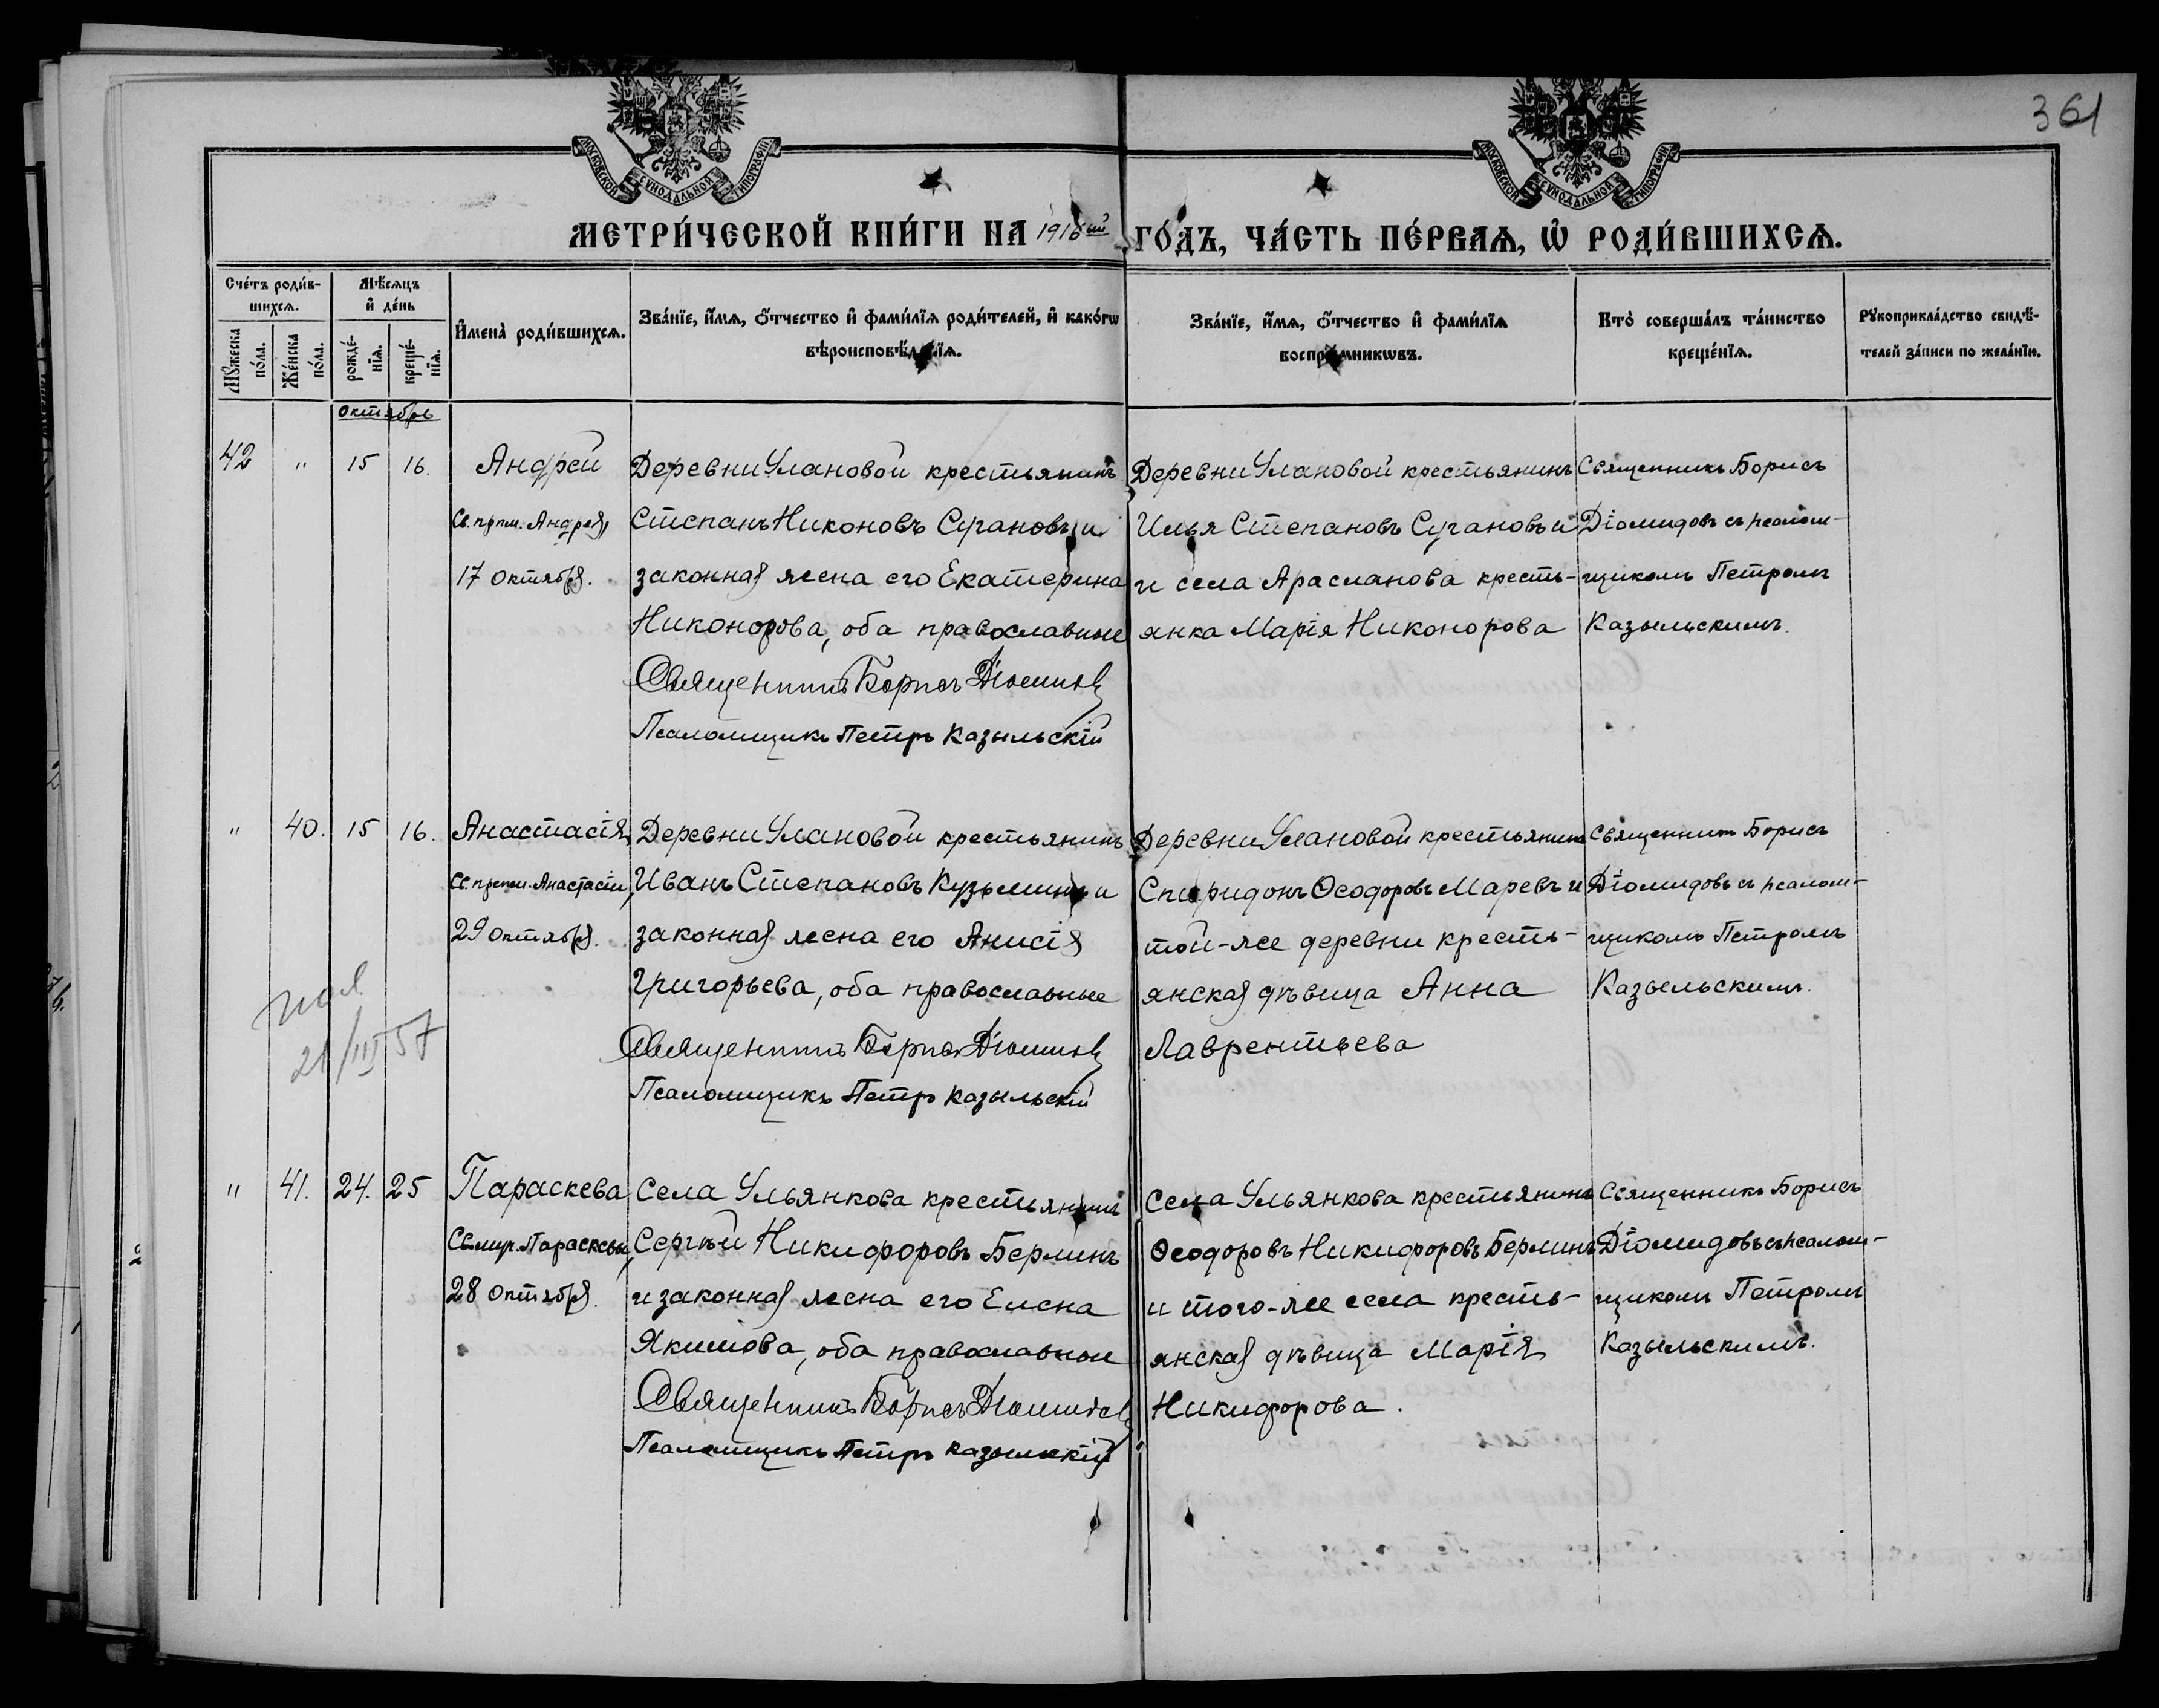 361
МОСКОВСКОЙ СѴНОДАЛЬНОЙ ТИПОГРАФІИ
МОСКОВСКОЙ СѴНОДАЛЬНОЙ ТИПОГРАФІИ
МЕТРИ́ЧЕСКОЙ КНИ́ГИ НА 1916ый ГО́ДЪ, ЧА́СТЬ ПЕ́РВАЯ, Ѡ РОДИ́ВШИХСЯ.
Сче́тъ роди́в-
шихся.
Му́жеска
по́ла.
Же́нска
по́ла.
Мѣ́сяцъ
и де́нь
рожде́-
нїя.
креще́-
нїя.
Имена̀ роди́вшихся.
Зва́нїе, и́мя, о́тчество и фами́лїя роди́телей, и како́гѡ
вѣроисповѣ́данїя.
Зва́нїе, и́мя, о́тчество и фами́лїя
воспрїе́мникѡвъ.
Кто̀ соверша́лъ та́инство
креще́нїя.
Рукоприкла́дство свидѣ́-
телей за́писи по жела́нїю.
Октябрь
42 " 15 16.
Андрей
Св. прпм. Андрея,
17 Октября.
Деревни Улановой крестьянинъ
Степанъ Никоновъ Сугановъ и
законная жена его Екатерина
Никонорова, оба православные
Священникъ Борисъ Діомидовъ
Псаломщикъ Петръ Казыльскій
Деревни Улановой крестьянинъ
Илья Степановъ Сугановъ и
и села Арасланова кресть-
янка Марія Никонорова
Священникъ Борисъ
Діомидовъ съ псалом-
щикомъ Петромъ
Казыльскимъ.
" 40. 15 16.
Анастасія
Св. препм. Анастасіи,
29 Октября.
Деревни Улановой крестьянинъ
Иванъ Степановъ Кузьминъ и
законная жена его Анисія
Григорьева, оба православные
Священникъ Борисъ Діомидовъ
Псаломщикъ Петръ Казыльскій
Деревни Улановой крестьянинъ
Спиридонъ Ѳеодоровъ Маревъ и
той-же деревни кресть-
янская дѣвица Анна
Лаврентьева
Священникъ Борисъ
Діомидовъ съ псалом-
щикомъ Петромъ
Казыльскимъ.
21/III 57
" 41. 24. 25
Параскева
Св. муч. Параскевы,
28 Октября.
Села Ульянкова крестьянинъ
Сергѣй Никифоровъ Берлинъ
и законная жена его Елена
Якимова, оба православные
Священникъ Борисъ Діомидовъ
Псаломщикъ Петръ Казыльскій
Села Ульянкова крестьянинъ
Ѳеодоровъ Никифоровъ Берлинъ
и того-же села кресть-
янская дѣвица Марія
Никифорова.
Священникъ Борисъ
Діомидовъ съ псалом-
щикомъ Петромъ
Казыльскимъ.